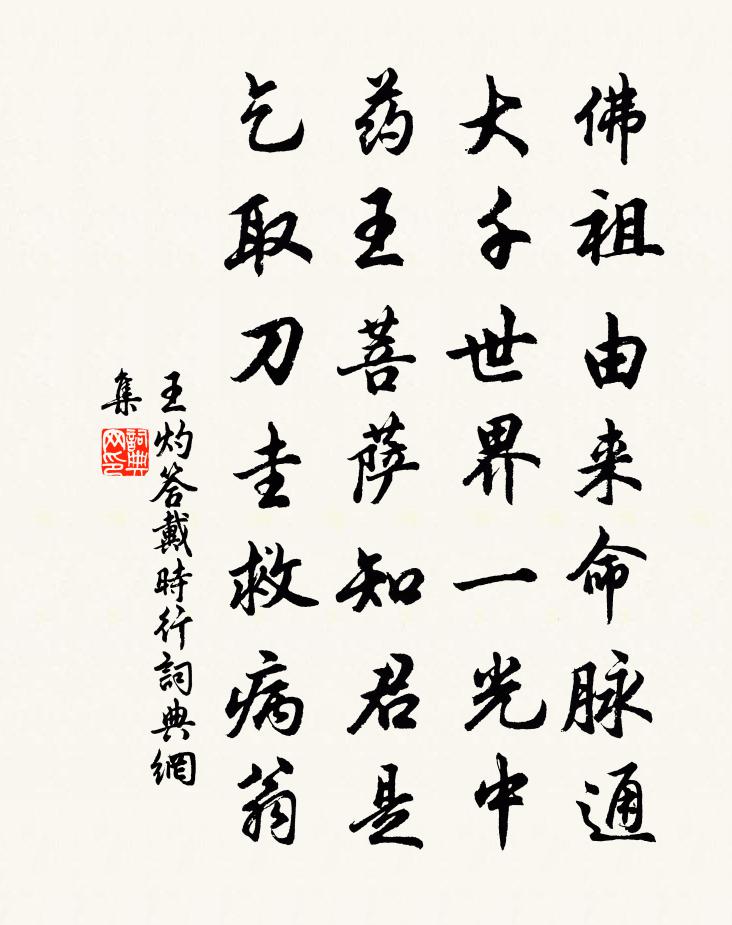 佛祖由来命脉通
大千世界一光中
药王菩萨知君是
乞取刀圭救病翁
王灼答戴時行詞典網
集
詞典
网印